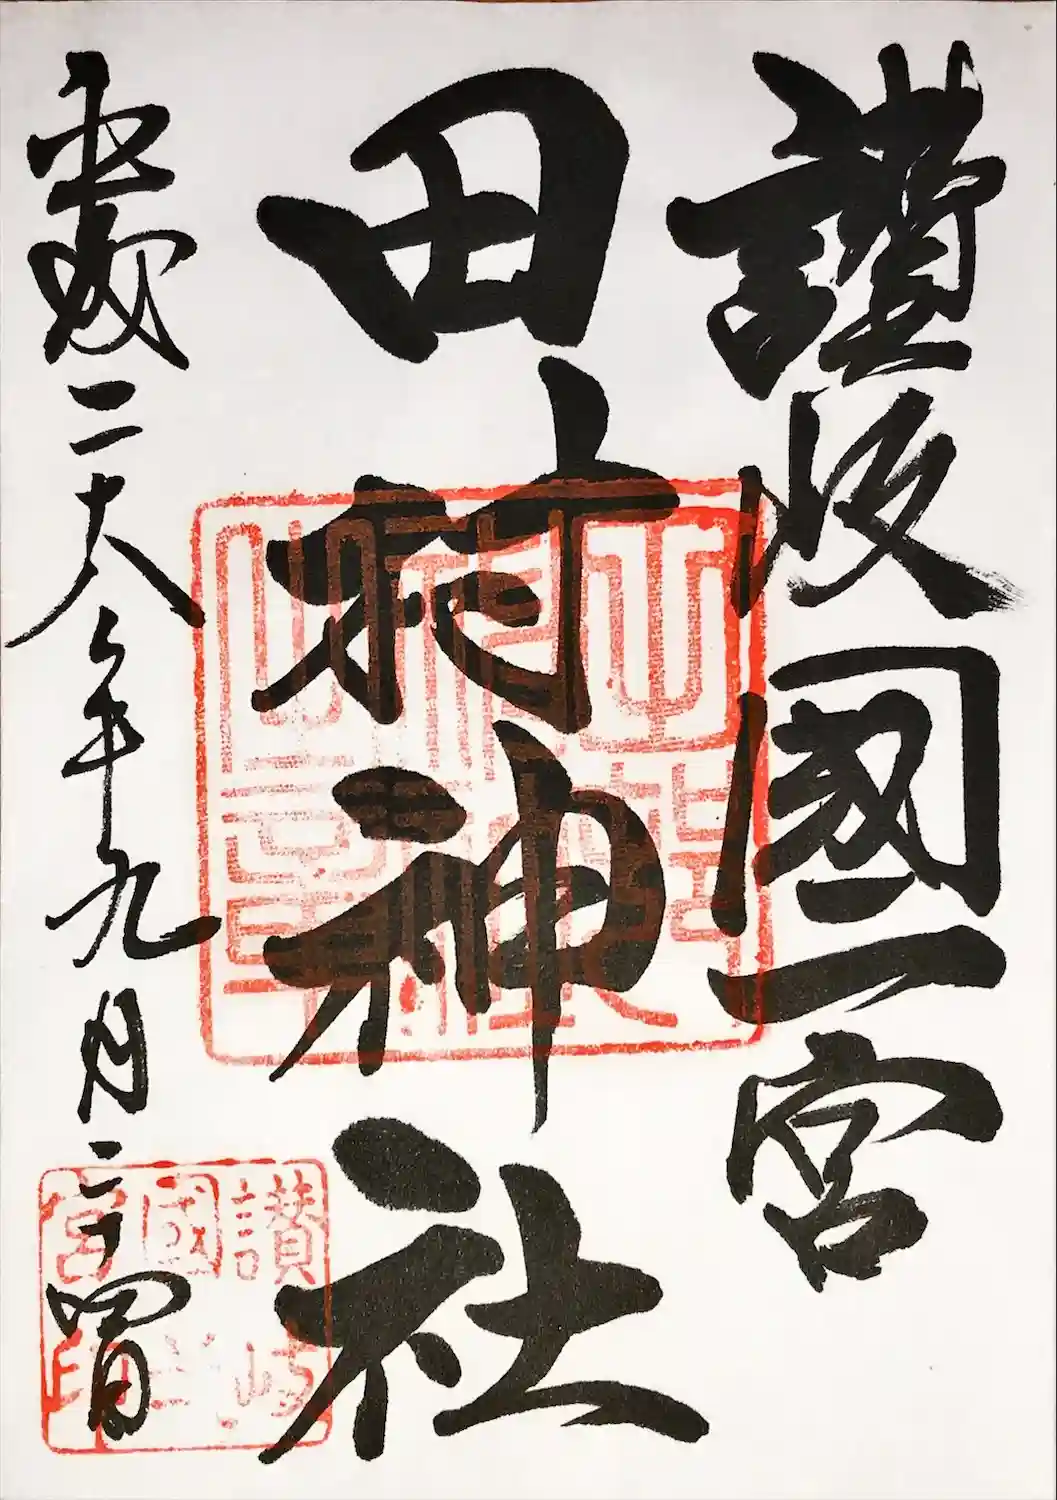 讃岐國一宮
田村神社
平成二十八年九月二十四日
讃岐
國一
宮印